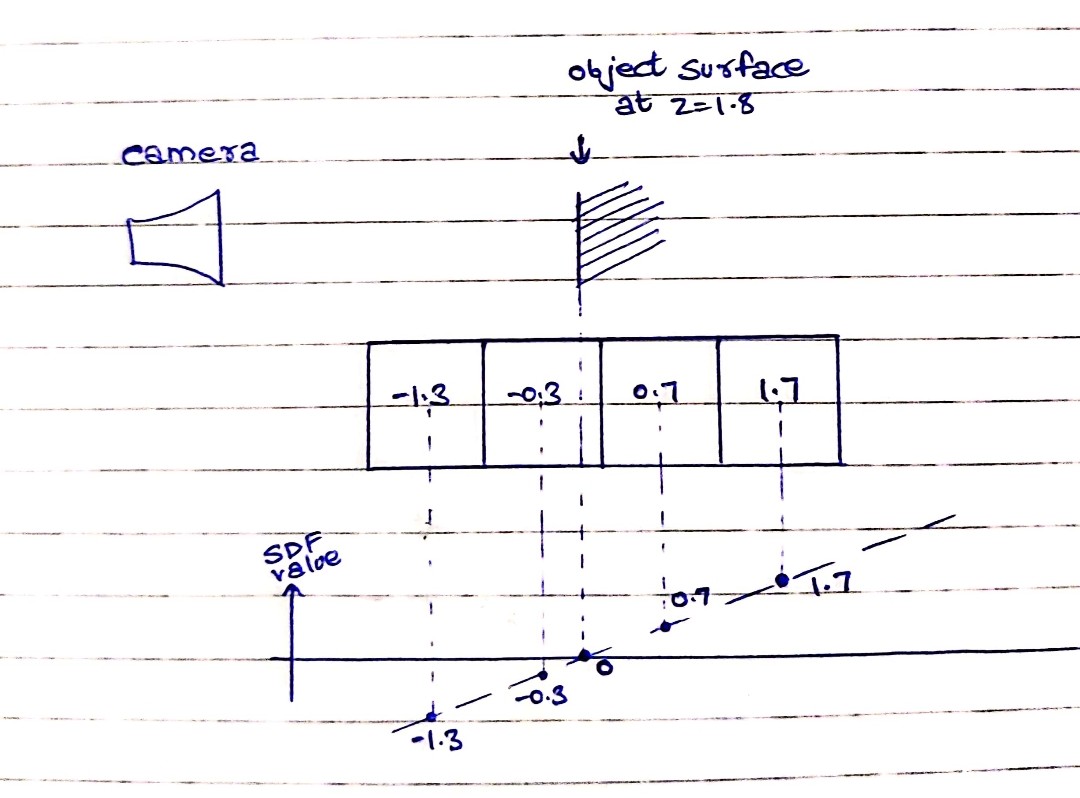 object surface
at z=1.8
camera
-1.3 -0.3 0.7 1.7
SDF
value
0.7
1.7
0
-0.3
-1.3